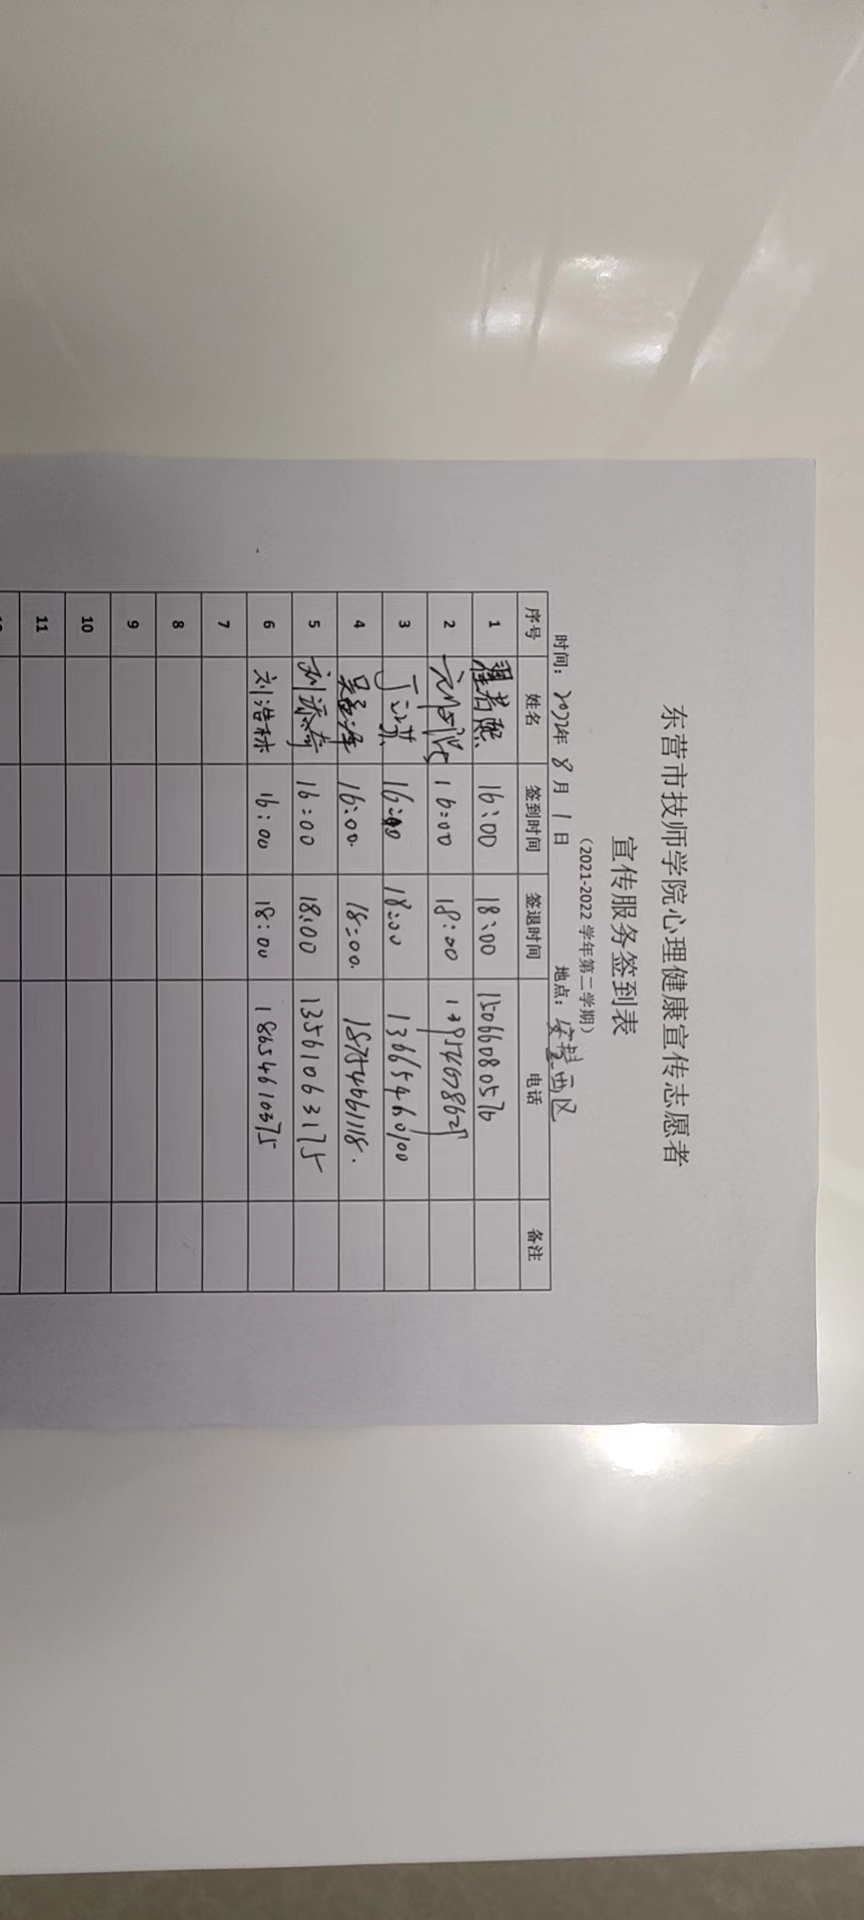 东营市技师学院心理健康宣传志愿者
宣传服务签到表
（2021-2022 学年第二学期）
时间：2022年 8 月 1 日 地点：安慧西区
序号 姓名 签到时间 签退时间 电话 备注
1 翟若熙 16:00 18:00 15066080576
2 16:00 18:00
3 16:00 18:00 13665460100
4 吴孟泽 16:00. 18:00. 18754661118.
5 刘添奇 16:00 18:00 13561063175
6 刘浩林 16:00 18:00 18654610375
7
8
9
10
11